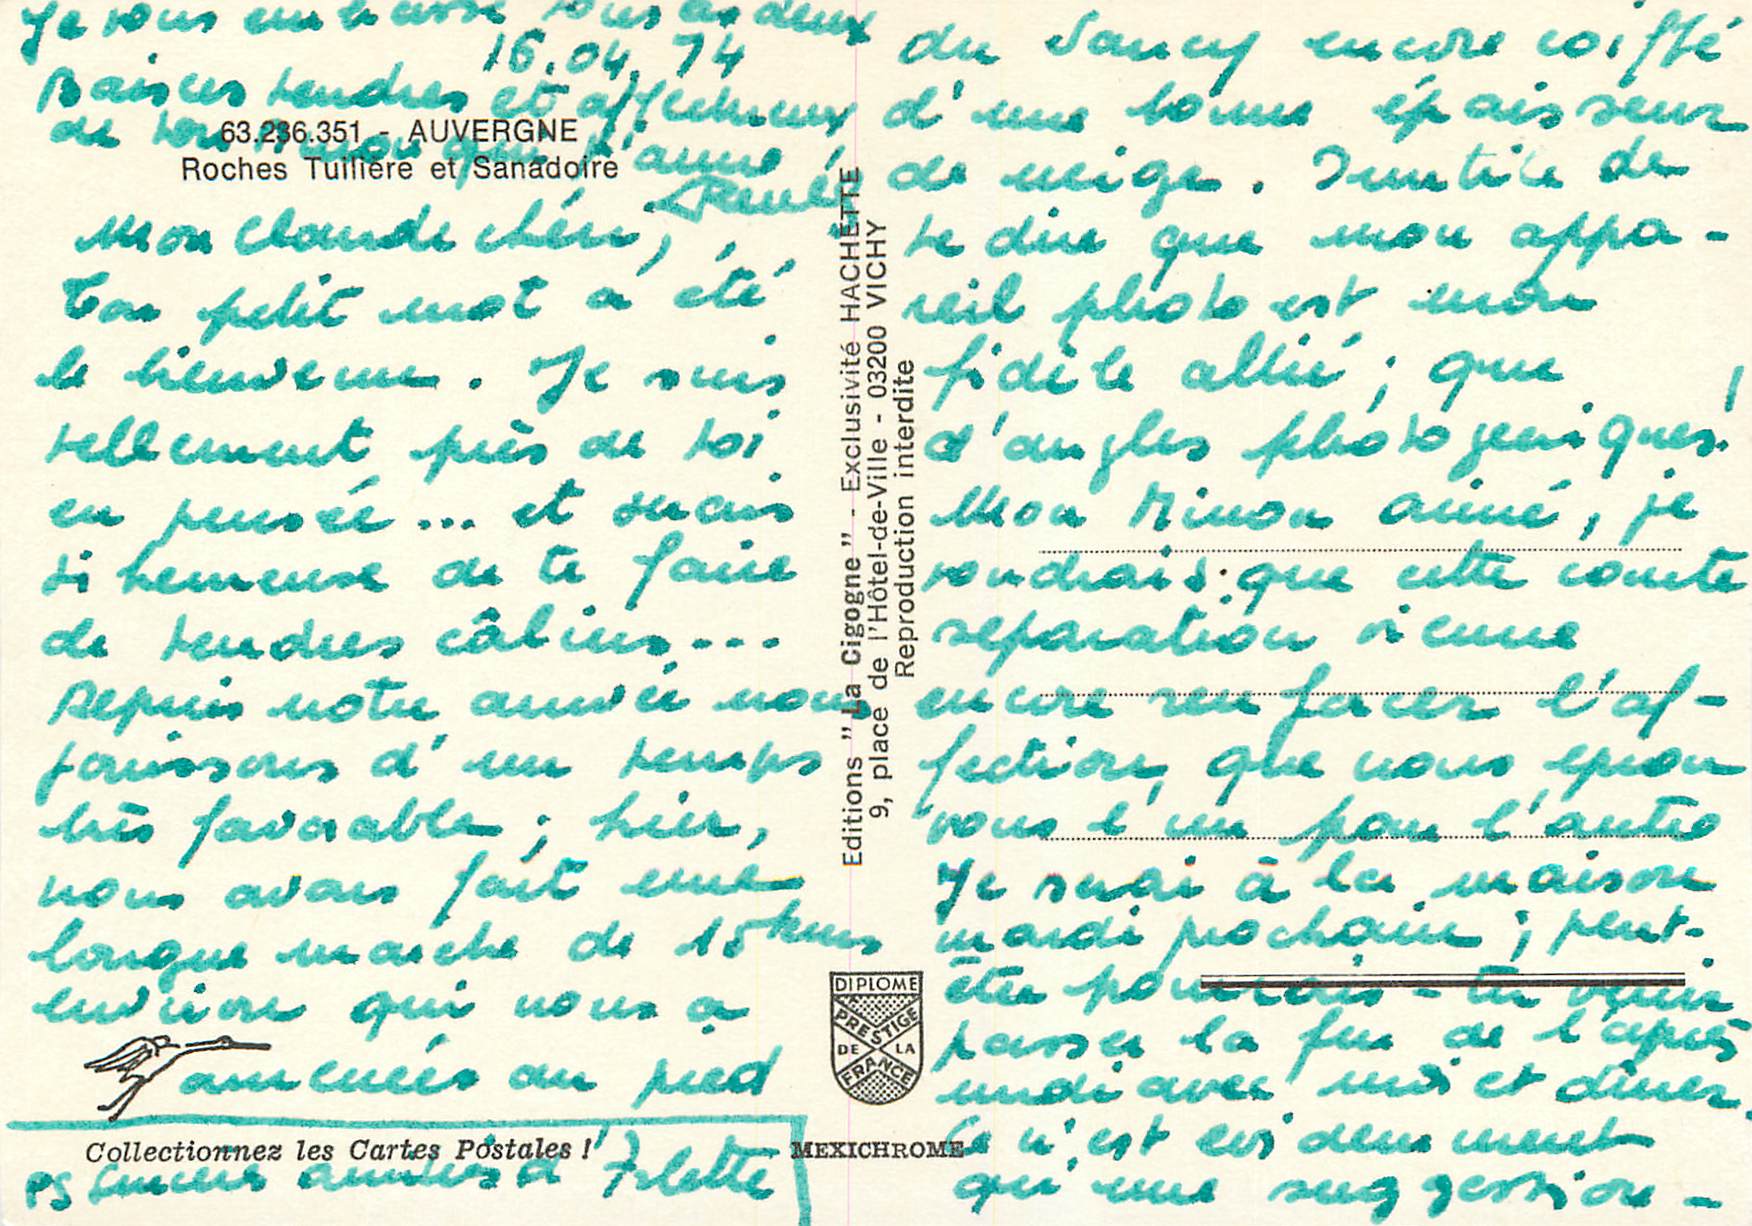 Je vous embrasse tous les deux
16.04.74
Baisers tendres et affectueux
de ton Minou qui t'aime,
Renée
63.236.351 - AUVERGNE
Roches Tuilière et Sanadoire
Mon Claude chéri,
Ton petit mot a été
le bienvenu. Je suis
tellement près de toi
en pensée... et serais
si heureuse de te faire
de tendres câlins...
Depuis notre arrivée nous
jouissons d'un temps
très favorable ; hier,
nous avons fait une
longue marche de 15 kms
environ qui nous a
amenées au pied
Collectionnez les Cartes Postales !
PS amitiés d'Arlette
Editions "La Cigogne" - Exclusivité HACHETTE
9, place de l'Hôtel-de-Ville - 03200 VICHY
Reproduction interdite
DIPLOME
PRESTIGE
DE LA
FRANCE
MEXICHROME
du Sancy encore coiffé
d'une bonne épaisseur
de neige. Inutile de
te dire que mon appa-
reil photo est mon
fidèle allié ; que
d'angles photogéniques !
Mon Minou aimé, je
voudrais que cette courte
séparation vienne
encore renforcer l'af-
fection, que nous éprou
vons l'un pour l'autre
Je serai à la maison
mardi prochain ; peut-
être pourrais-tu venir
passer la fin de l'après
midi avec moi et dîner.
Ce n'est evidemment
qu'une suggestion -